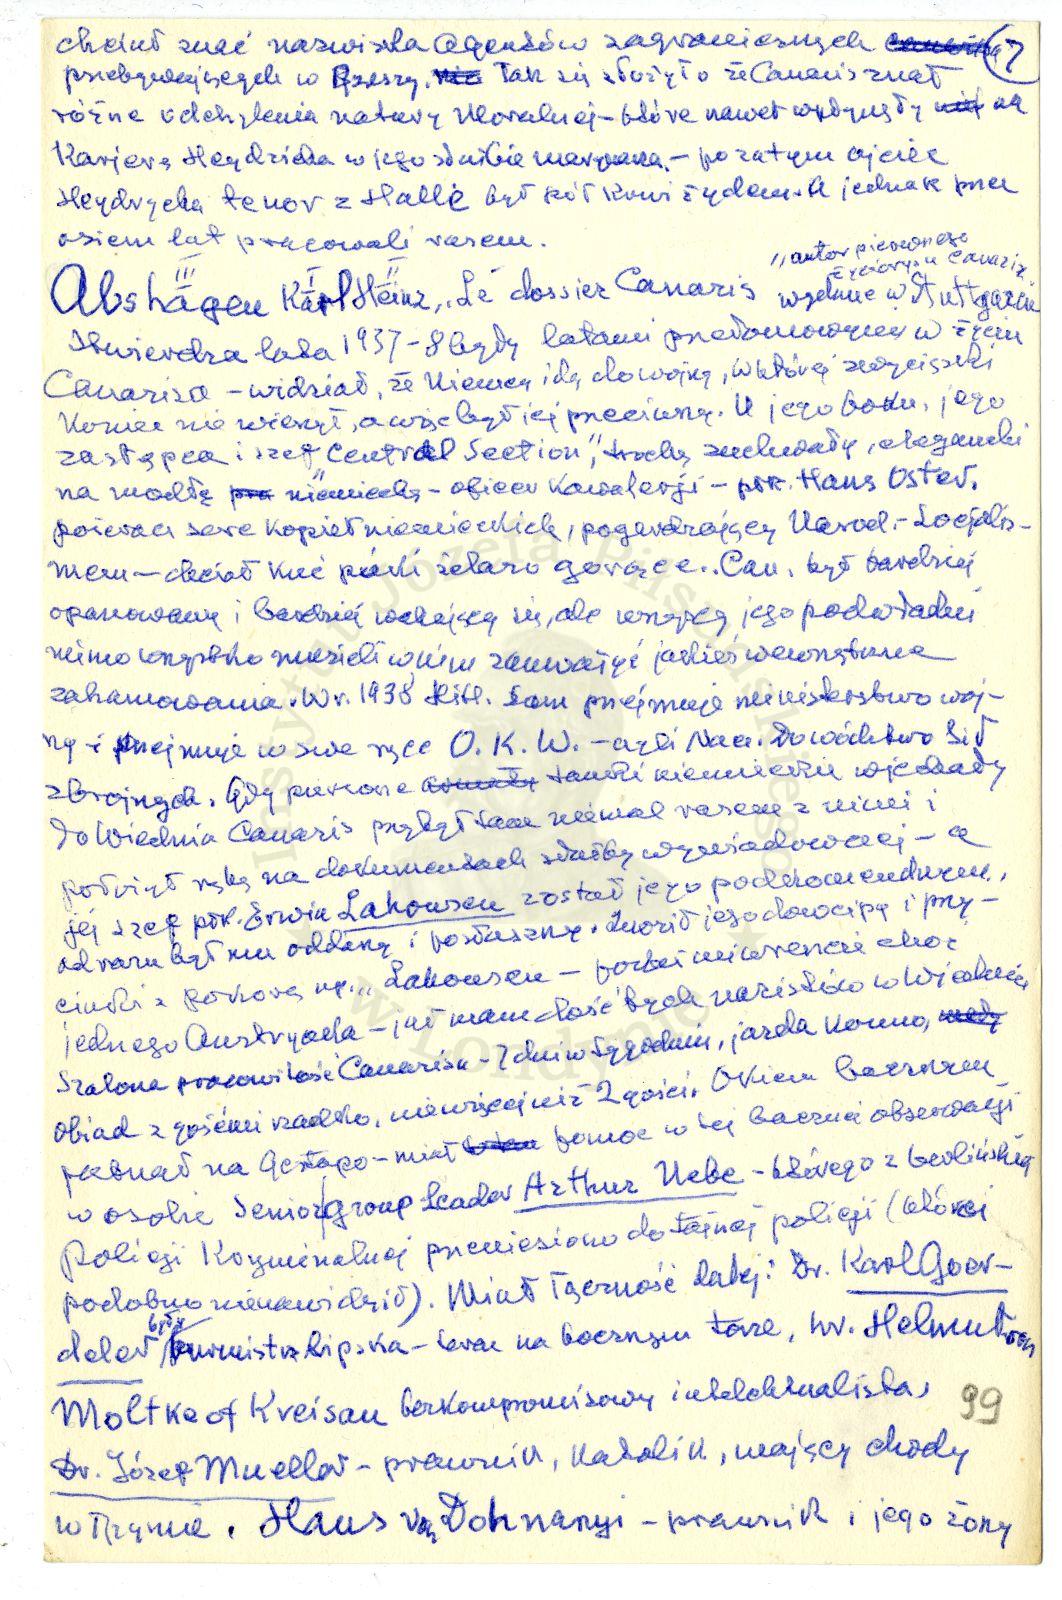 chciał znać nazwiska agentów zagranicznych 7
przebywających w Rzeszy. Tak się złożyło że Canaris znał
różne odchylenia natury moralnej – które nawet wpłynęły na
Karjerę Heydricha w jego służbie – poza tym ojciec
Heydrycha tenor z Halle był pół krwi żydem. A jednak przez
osiem lat pracowali razem.
"autor pierwszego
życiorysu Canarisa
III I II
Abshägen Karl Heinz, "Le dossier Canaris wydane w Stuttgarcie
Stwierdza lata 1937-8 były latami przełomowymi w życiu
Canarisa – widział, że Niemcy idą do wojny, w której zwycięski
koniec nie wierzył, a więc był jej przeciwny. U jego boku, jego
zastępca i szef "Central Section", trochę zuchwały, elegancki
na modłę niemiecką – oficer Kawalerji – płk. Hans Oster.
pożeracz serc kobiet niemieckich, pogardzający Narod.-Socjalis-
mem – chciał kuć póki żelazo gorące. Can. był bardziej
opanowany i bardziej wahający się, ale wszyscy jego podwładni
mimo wszystko musieli w nim zauważyć jakieś wewnętrzne
zahamowania. W r. 1938 Hitl. sam przejmuje ministerstwo woj-
ny i przejmuje w swe ręce O.K.W. – czyli Nacz. Dowództwo Sił
zbrojnych. Gdy pierwsze czołgi tanki niemieckie wjechały
do Wiednia Canaris przybył tam niemal razem z nimi i
położył rękę na dokumentach służby wywiadowczej – a
jej szef płk. Erwin Lahousen został jego podkomendnym,
od razu był mu oddany i posłuszny. jego dowcipy i przy-
cinki z np. "Lahousen – choć
jednego Austryjaka – już mam dość tych nazistów w Wiedniu
Szalona pracowitość Canarisa – 7 dni w tygodniu, jazda konno,
obiad z gośćmi rzadko, nie więcej niż 2 gości. Okiem bacznym
patrzał na Gestapo – miał pomoc w tej bacznej obserwacji
w osobie Senior group leader Arthur Nebe – którego z berlińskiej
Policji Kryminalnej przeniesiono do tajnej policji (której
podobno nienawidził). Miał łączność dalej: Dr. Karl Goer-
deler były burmistrz Lipska – teraz na bocznym torze, hr. Helmut von
Moltke of Kreisau bezkompromisowy intelektualista,
99
Dr. Józef Mueller – prawnik, Katolik, mający chody
w Rzymie. Hans von Dohnanyi – prawnik i jego żony